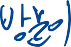 방울이